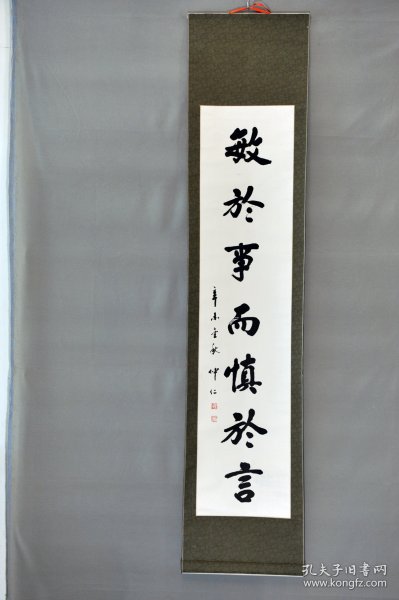 敏於事而慎於言
辛未金秋 仲仁
孔夫子旧书网
www.kongfz.com